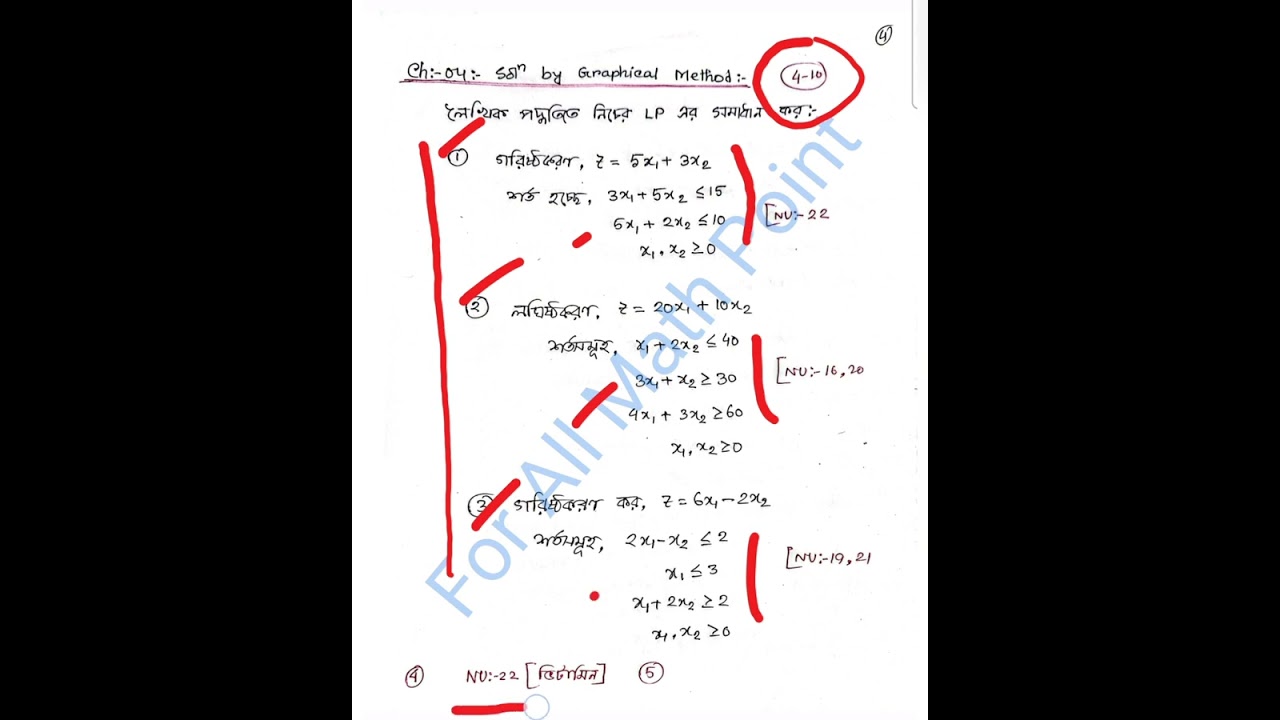 4
Ch:-04:- Solⁿ by Graphical Method:- 4-10
লৈখিক পদ্ধতিতে নিচের LP এর সমাধান কর:-
① গরিষ্ঠকরণ, z = 5x₁ + 3x₂
শর্ত হচ্ছে, 3x₁ + 5x₂ ≤ 15
5x₁ + 2x₂ ≤ 10 [NU:-22
x₁, x₂ ≥ 0
② লঘিষ্ঠকরণ, z = 20x₁ + 10x₂
শর্তসমূহ, x₁ + 2x₂ ≤ 40
3x₁ + x₂ ≥ 30 [NU:-16,20
4x₁ + 3x₂ ≥ 60
x₁, x₂ ≥ 0
③ গরিষ্ঠকরণ কর, z = 6x₁ - 2x₂
শর্তসমূহ, 2x₁ - x₂ ≤ 2
x₁ ≤ 3 [NU:-19,21
x₁ + 2x₂ ≥ 2
x₁, x₂ ≥ 0
④ NU:-22 [ভিটামিন] ⑤
For All Math Point